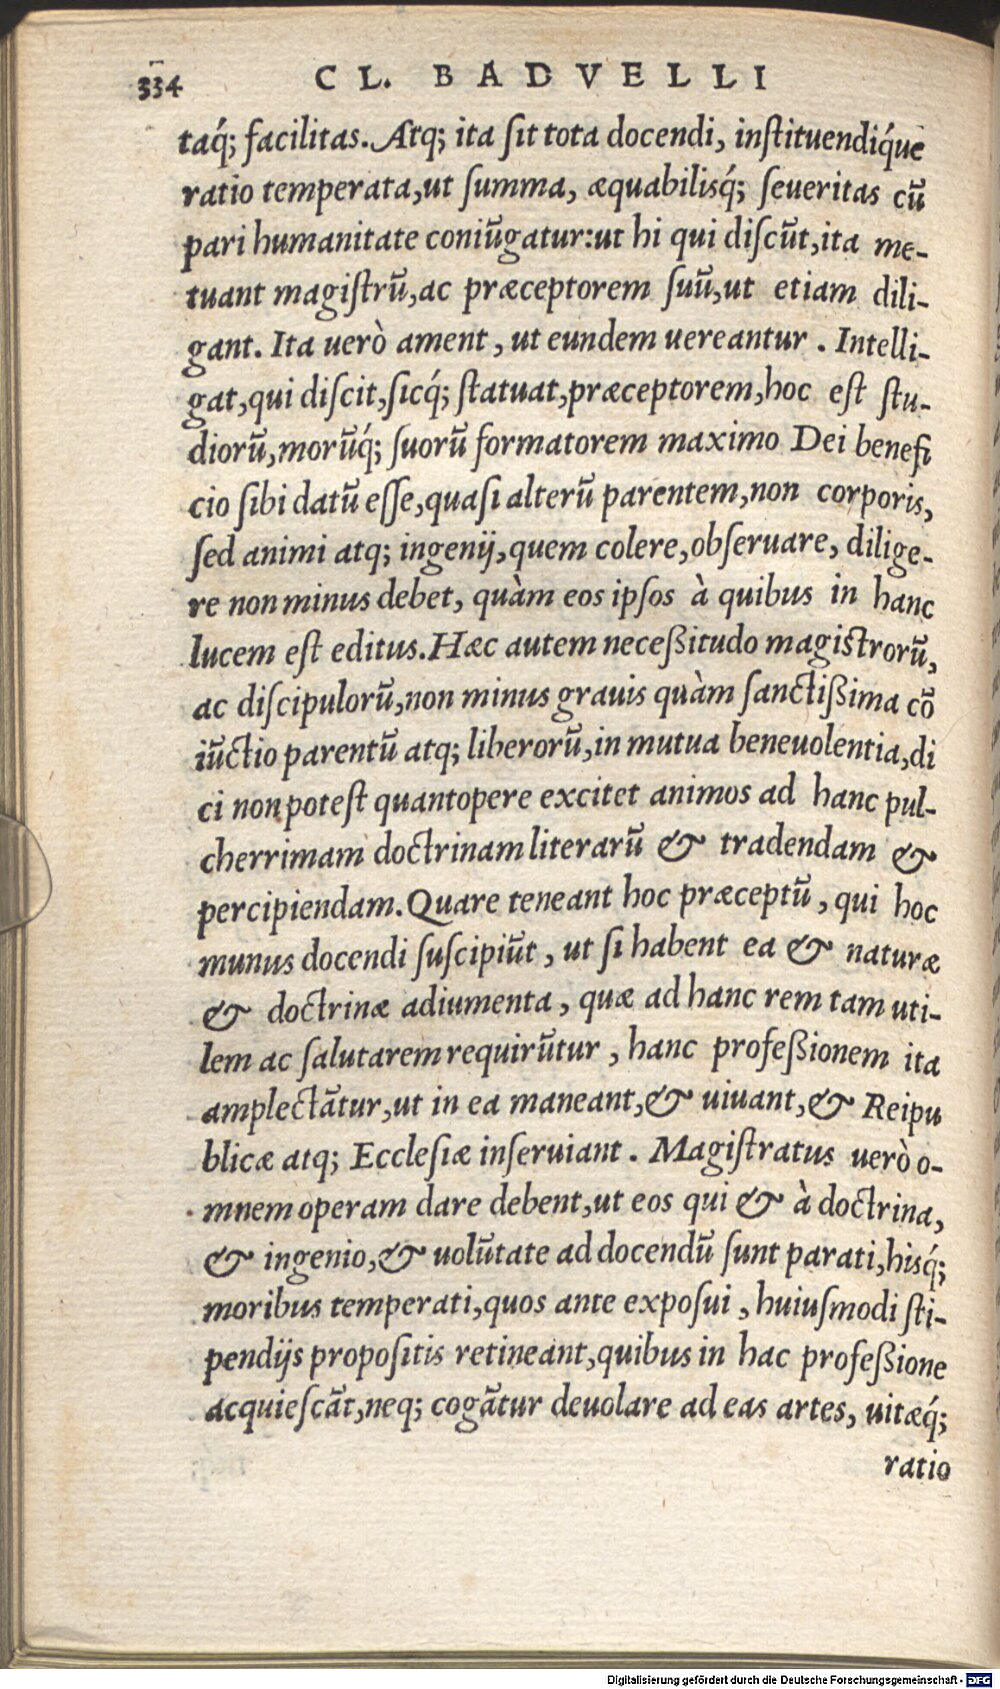 334 CL. BADVELLI
taq́; facilitas. Atq; ita ſit tota docendi, inſtituendiq́ue
ratio temperata, ut ſumma, æquabilisq́; ſeueritas cū
pari humanitate coniūgatur: ut hi qui diſcūt, ita me-
tuant magiſtrū, ac præceptorem ſuū, ut etiam dili-
gant. Ita uerò ament, ut eundem uereantur. Intelli-
gat, qui diſcit, ſicq́; ſtatuat, præceptorem, hoc eſt ſtu-
diorū, morūq́; ſuorū formatorem maximo Dei benefi
cio ſibi datū eſſe, quaſi alterū parentem, non corporis,
ſed animi atq; ingenij, quem colere, obſeruare, dilige-
re non minus debet, quàm eos ipſos à quibus in hanc
lucem eſt editus. Hæc autem neceßitudo magiſtrorū,
ac diſcipulorū, non minus grauis quàm ſanctißima cō
iūctio parentū atq; liberorū, in mutua beneuolentia, di
ci non poteſt quantopere excitet animos ad hanc pul-
cherrimam doctrinam literarū & tradendam &
percipiendam. Quare teneant hoc præceptū, qui hoc
munus docendi ſuſcipiūt, ut ſi habent ea & naturæ
& doctrinæ adiumenta, quæ ad hanc rem tam uti-
lem ac ſalutarem requirūtur, hanc profeßionem ita
amplectātur, ut in ea maneant, & uiuant, & Reipu
blicæ atq; Eccleſiæ inſeruiant. Magiſtratus uerò o-
mnem operam dare debent, ut eos qui & à doctrina,
& ingenio, & uolūtate ad docendū ſunt parati, hisq́;
moribus temperati, quos ante expoſui, huiuſmodi ſti-
pendijs propoſitis retineant, quibus in hac profeßione
acquieſcāt, neq; cogātur deuolare ad eas artes, uitæq́;
ratio
Digitalisierung gefördert durch die Deutsche Forschungsgemeinschaft - DFG